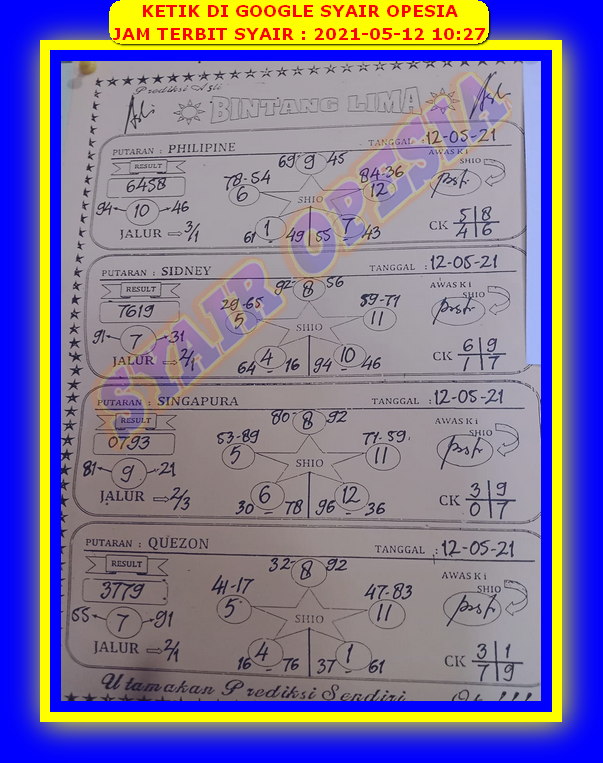 KETIK DI GOOGLE SYAIR OPESIA
JAM TERBIT SYAIR : 2021-05-12 10:27
Prediksi Asli
BINTANG LIMA
SYAIR OPESIA
PUTARAN : PHILIPINE TANGGAL : 12-05-21
RESULT
6458
94 10 46
JALUR 3/1
69 9 45
78-54 6
84-36 12
SHIO
61 1 49 55 7 43
AWAS Ki SHIO
CK 5 8
4 6
PUTARAN : SIDNEY TANGGAL : 12-05-21
RESULT
7619
91 7 31
JALUR 2/1
92 8 56
29-65 5
59-71 11
SHIO
64 4 16 94 10 46
AWAS Ki SHIO
CK 6 9
1 7
PUTARAN : SINGAPURA TANGGAL : 12-05-21
RESULT
0793
81 9 21
JALUR 2/3
80 8 92
53-89 5
71-59 11
SHIO
30 6 78 96 12 36
AWAS Ki SHIO
CK 3 9
0 7
PUTARAN : QUEZON TANGGAL : 12-05-21
RESULT
3779
55 7 91
JALUR 2/1
32 8 92
41-17 5
47-83 11
SHIO
16 4 76 37 1 61
AWAS Ki SHIO
CK 3 1
7 9
Utamakan Prediksi Sendiri